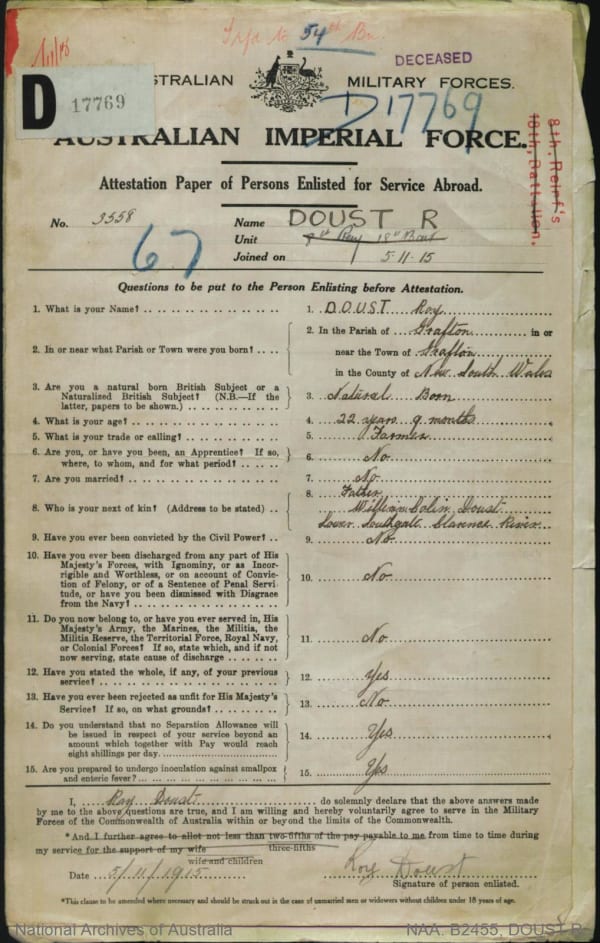 Trfd to 54th Bn.
DECEASED
D 17769
AUSTRALIAN MILITARY FORCES.
D17769
AUSTRALIAN IMPERIAL FORCE.
8th. Reinf's
18th. Battalion.
Attestation Paper of Persons Enlisted for Service Abroad.
No. 3558 Name DOUST R
67 Unit 8th Rein 18th Batt
Joined on 5-11-15
Questions to be put to the Person Enlisting before Attestation.
1. What is your Name? 1. DOUST Roy
2. In or near what Parish or Town were you born? 2. In the Parish of Grafton in or
near the Town of Grafton
in the County of New South Wales
3. Are you a natural born British Subject or a
Naturalized British Subject? (N.B.—If the
latter, papers to be shown.) 3. Natural Born
4. What is your age? 4. 22 years 9 months
5. What is your trade or calling? 5. Farmer
6. Are you, or have you been, an Apprentice? If so,
where, to whom, and for what period? 6. No
7. Are you married? 7. No
8. Who is your next of kin? (Address to be stated) 8. Father
William Colin Doust
Lower Southgate Clarence River
9. Have you ever been convicted by the Civil Power? 9. No
10. Have you ever been discharged from any part of His
Majesty's Forces, with Ignominy, or as Incor-
rigible and Worthless, or on account of Convic-
tion of Felony, or of a Sentence of Penal Servi-
tude, or have you been dismissed with Disgrace
from the Navy? 10. No
11. Do you now belong to, or have you ever served in, His
Majesty's Army, the Marines, the Militia, the
Militia Reserve, the Territorial Force, Royal Navy,
or Colonial Forces? If so, state which, and if not
now serving, state cause of discharge 11. No
12. Have you stated the whole, if any, of your previous
service? 12. Yes
13. Have you ever been rejected as unfit for His Majesty's
Service? If so, on what grounds? 13. No
14. Do you understand that no Separation Allowance will
be issued in respect of your service beyond an
amount which together with Pay would reach
eight shillings per day. 14. Yes
15. Are you prepared to undergo inoculation against smallpox
and enteric fever? 15. Yes
I, Roy Doust do solemnly declare that the above answers made
by me to the above questions are true, and I am willing and hereby voluntarily agree to serve in the Military
Forces of the Commonwealth of Australia within or beyond the limits of the Commonwealth.
*And I further agree to allot not less than two-fifths of the pay payable to me from time to time during
three-fifths
my service for the support of my wife
wife and children
Date 5/11/1915 Roy Doust
Signature of person enlisted.
*This clause to be amended where necessary and should be struck out in the case of unmarried men or widowers without children under 18 years of age.
National Archives of Australia NAA: B2455, DOUST R